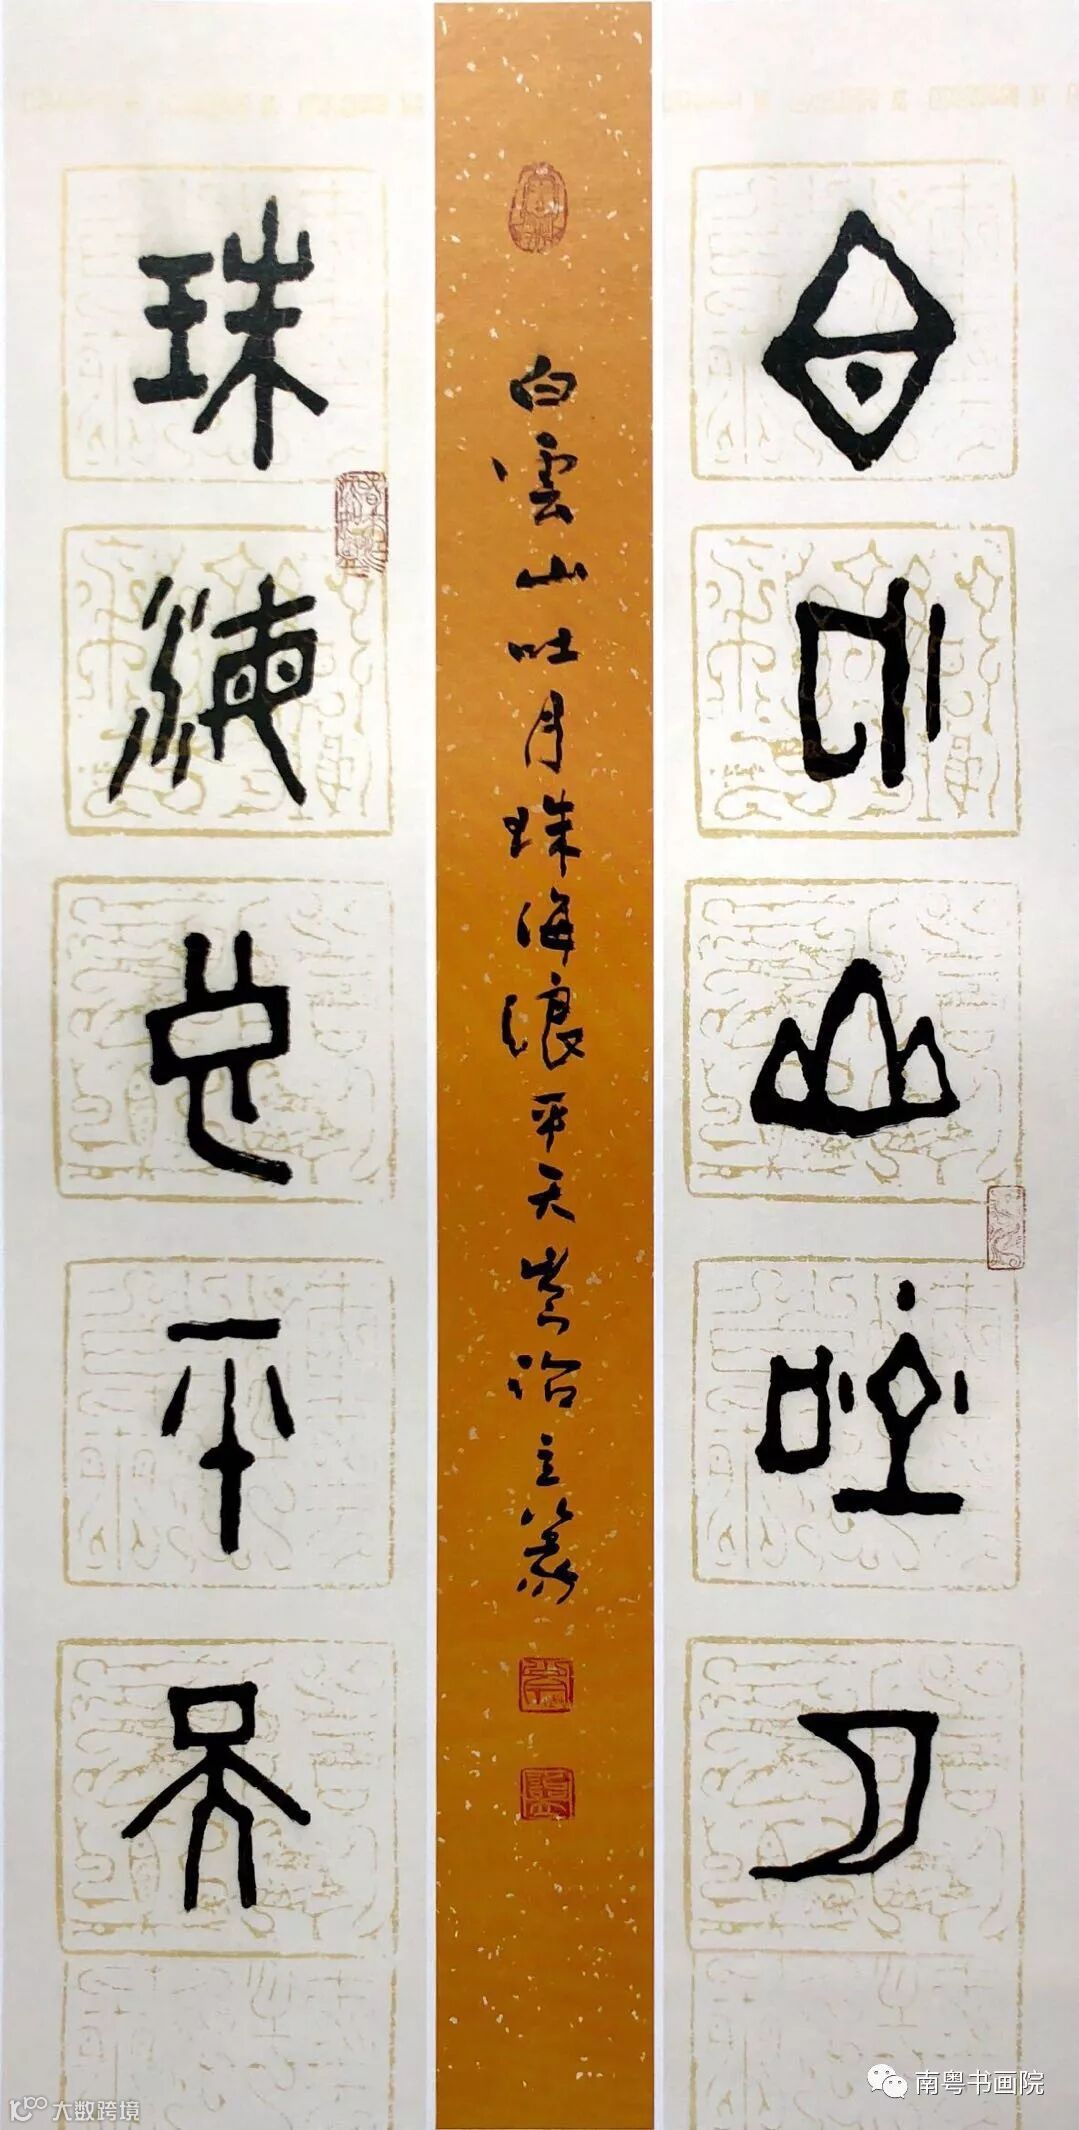 白雲山吐月
珠海浪平天
白雲山吐月珠海浪平天 治立篆
南粤书画院
大数跨境